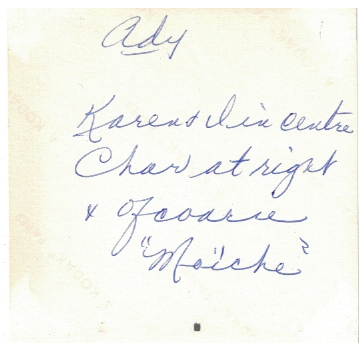 Ady
Karen & I in centre
Char at right
& of coarse
"Moiche"